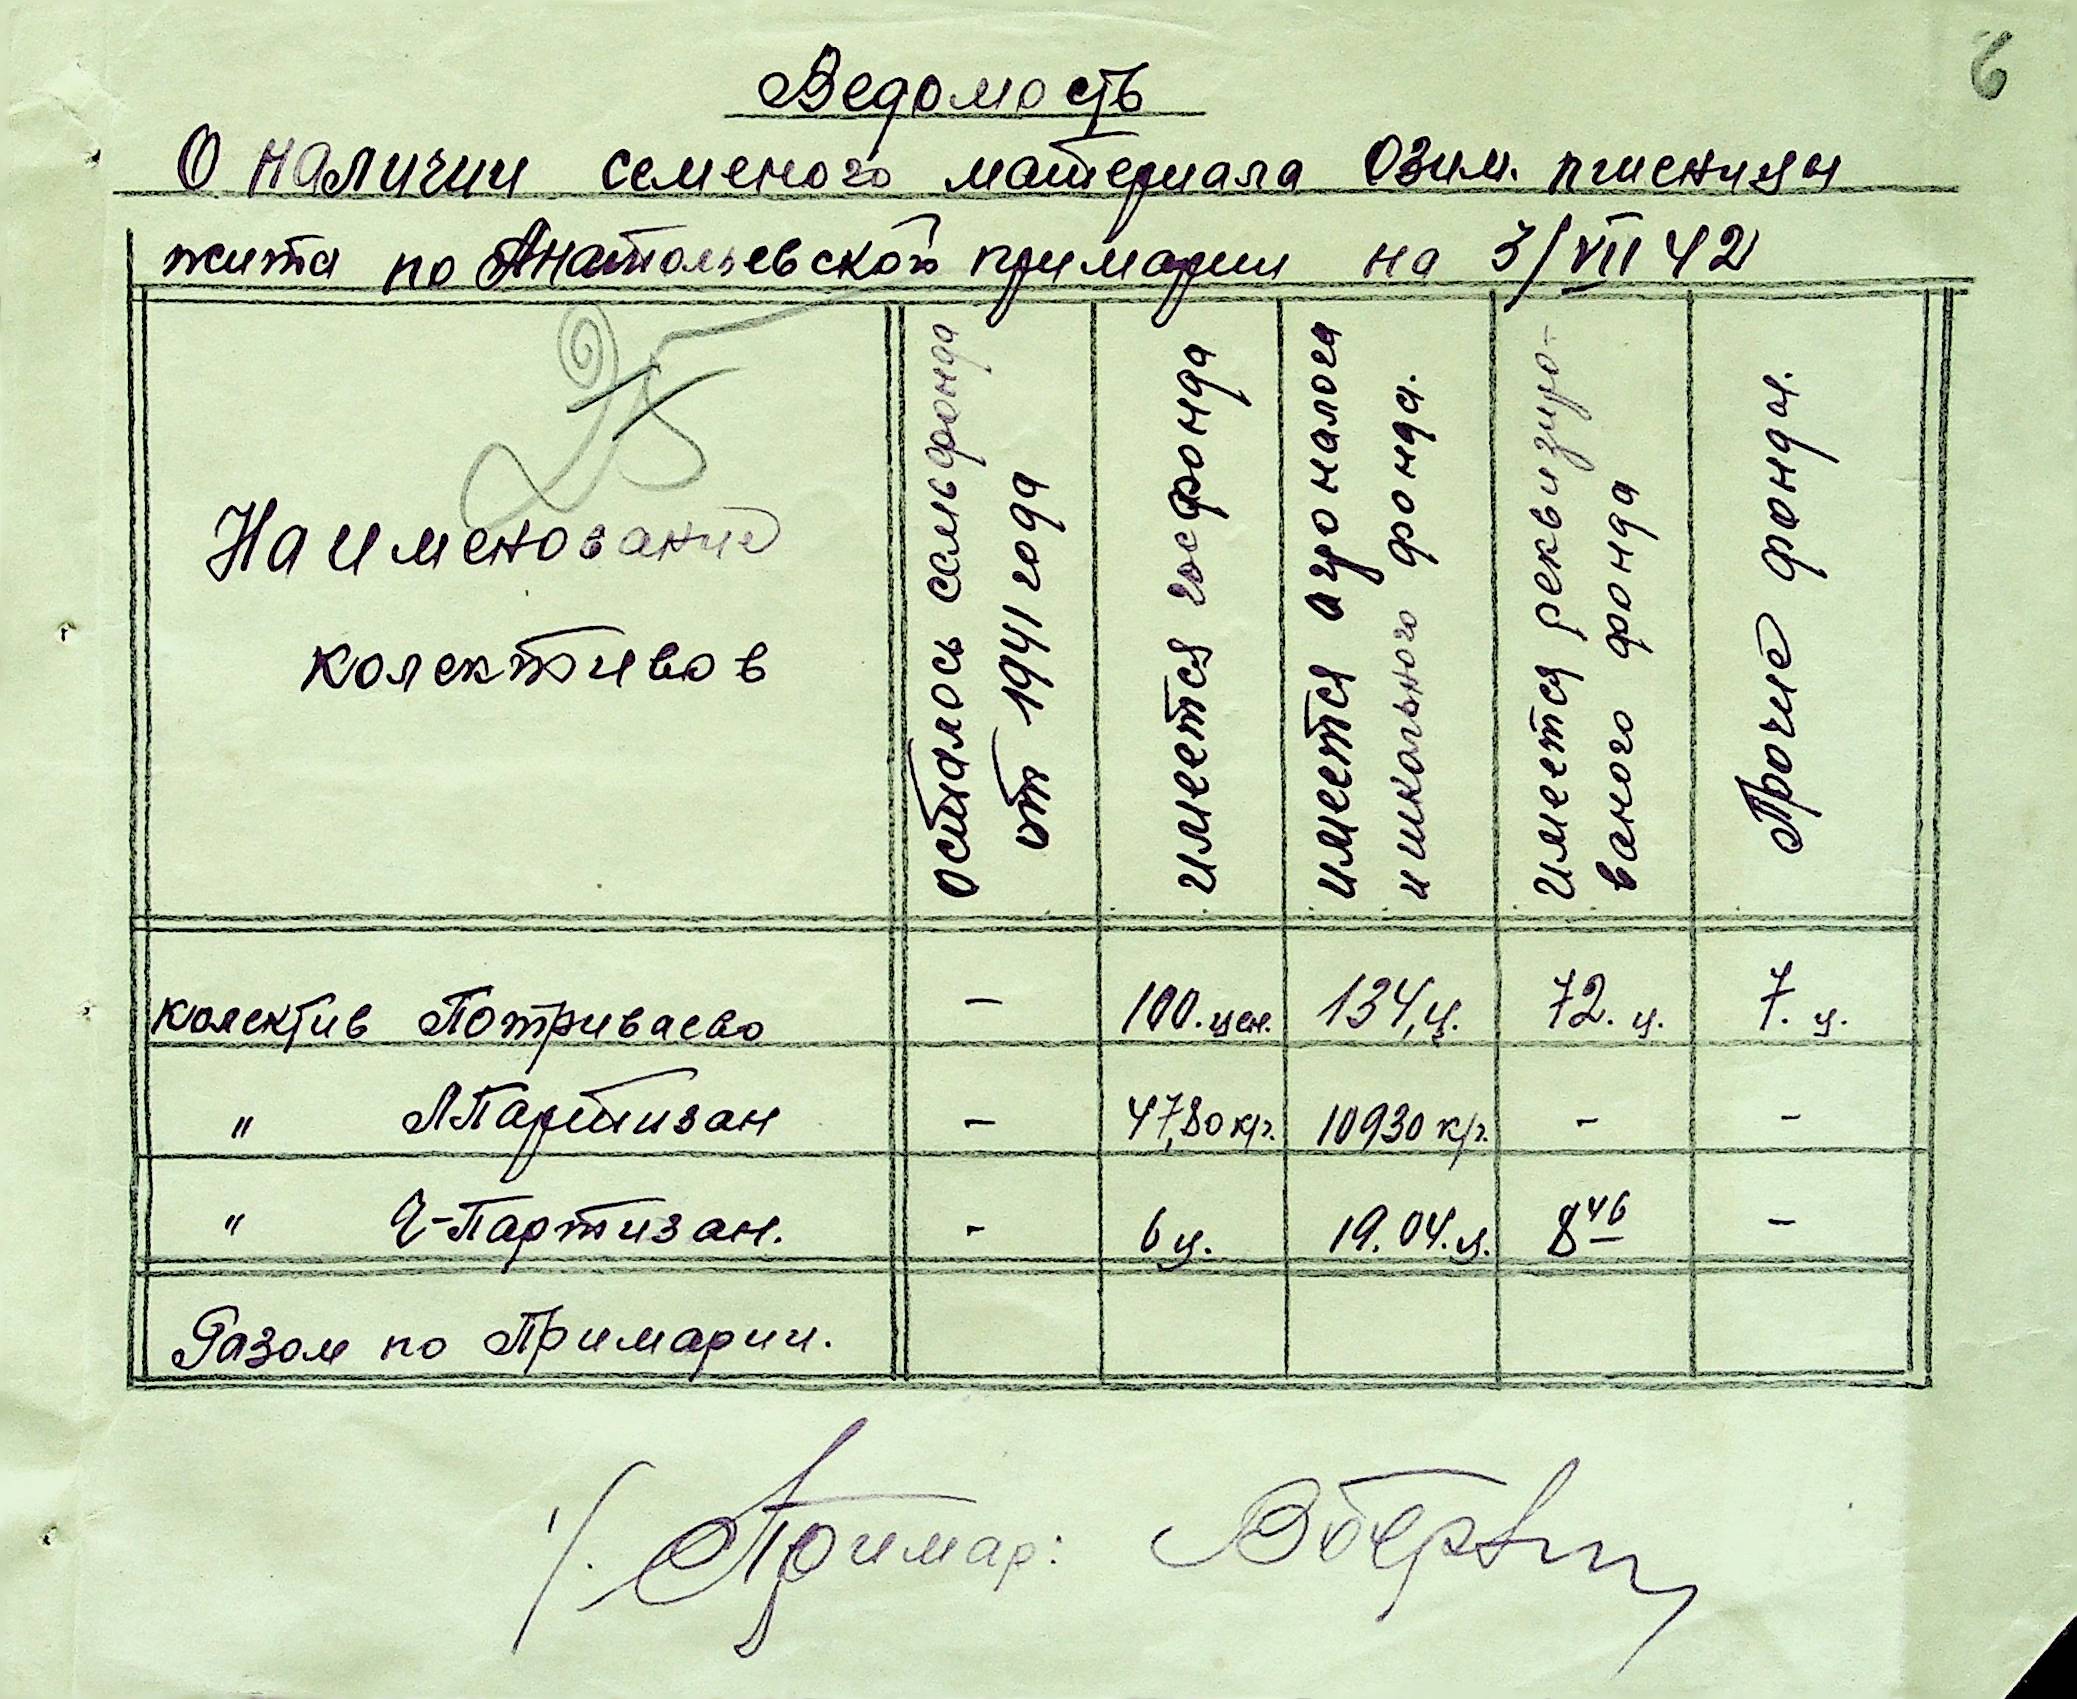 6
Ведомость
О наличии семеного материала озим. пшеницы
жита по Анатольевской примарии на 3/VII 42
25
Наименование
колективов
Осталось семьфонда
от 1941 года
имеется госфонда
имеется агроналога
и школьного фонда.
Имеется реквизиро-
ваного фонда
Прочие фонды.
Колектив Потриваево - 100.цен. 134,ц. 72.ц. 7.ц.
" Л Партизан - 47,80 кг. 10930 кг. - -
" Ч-Партизан. - 6 ц. 19.04.ц. 8 46 -
Разом по Примарии.
Примар: